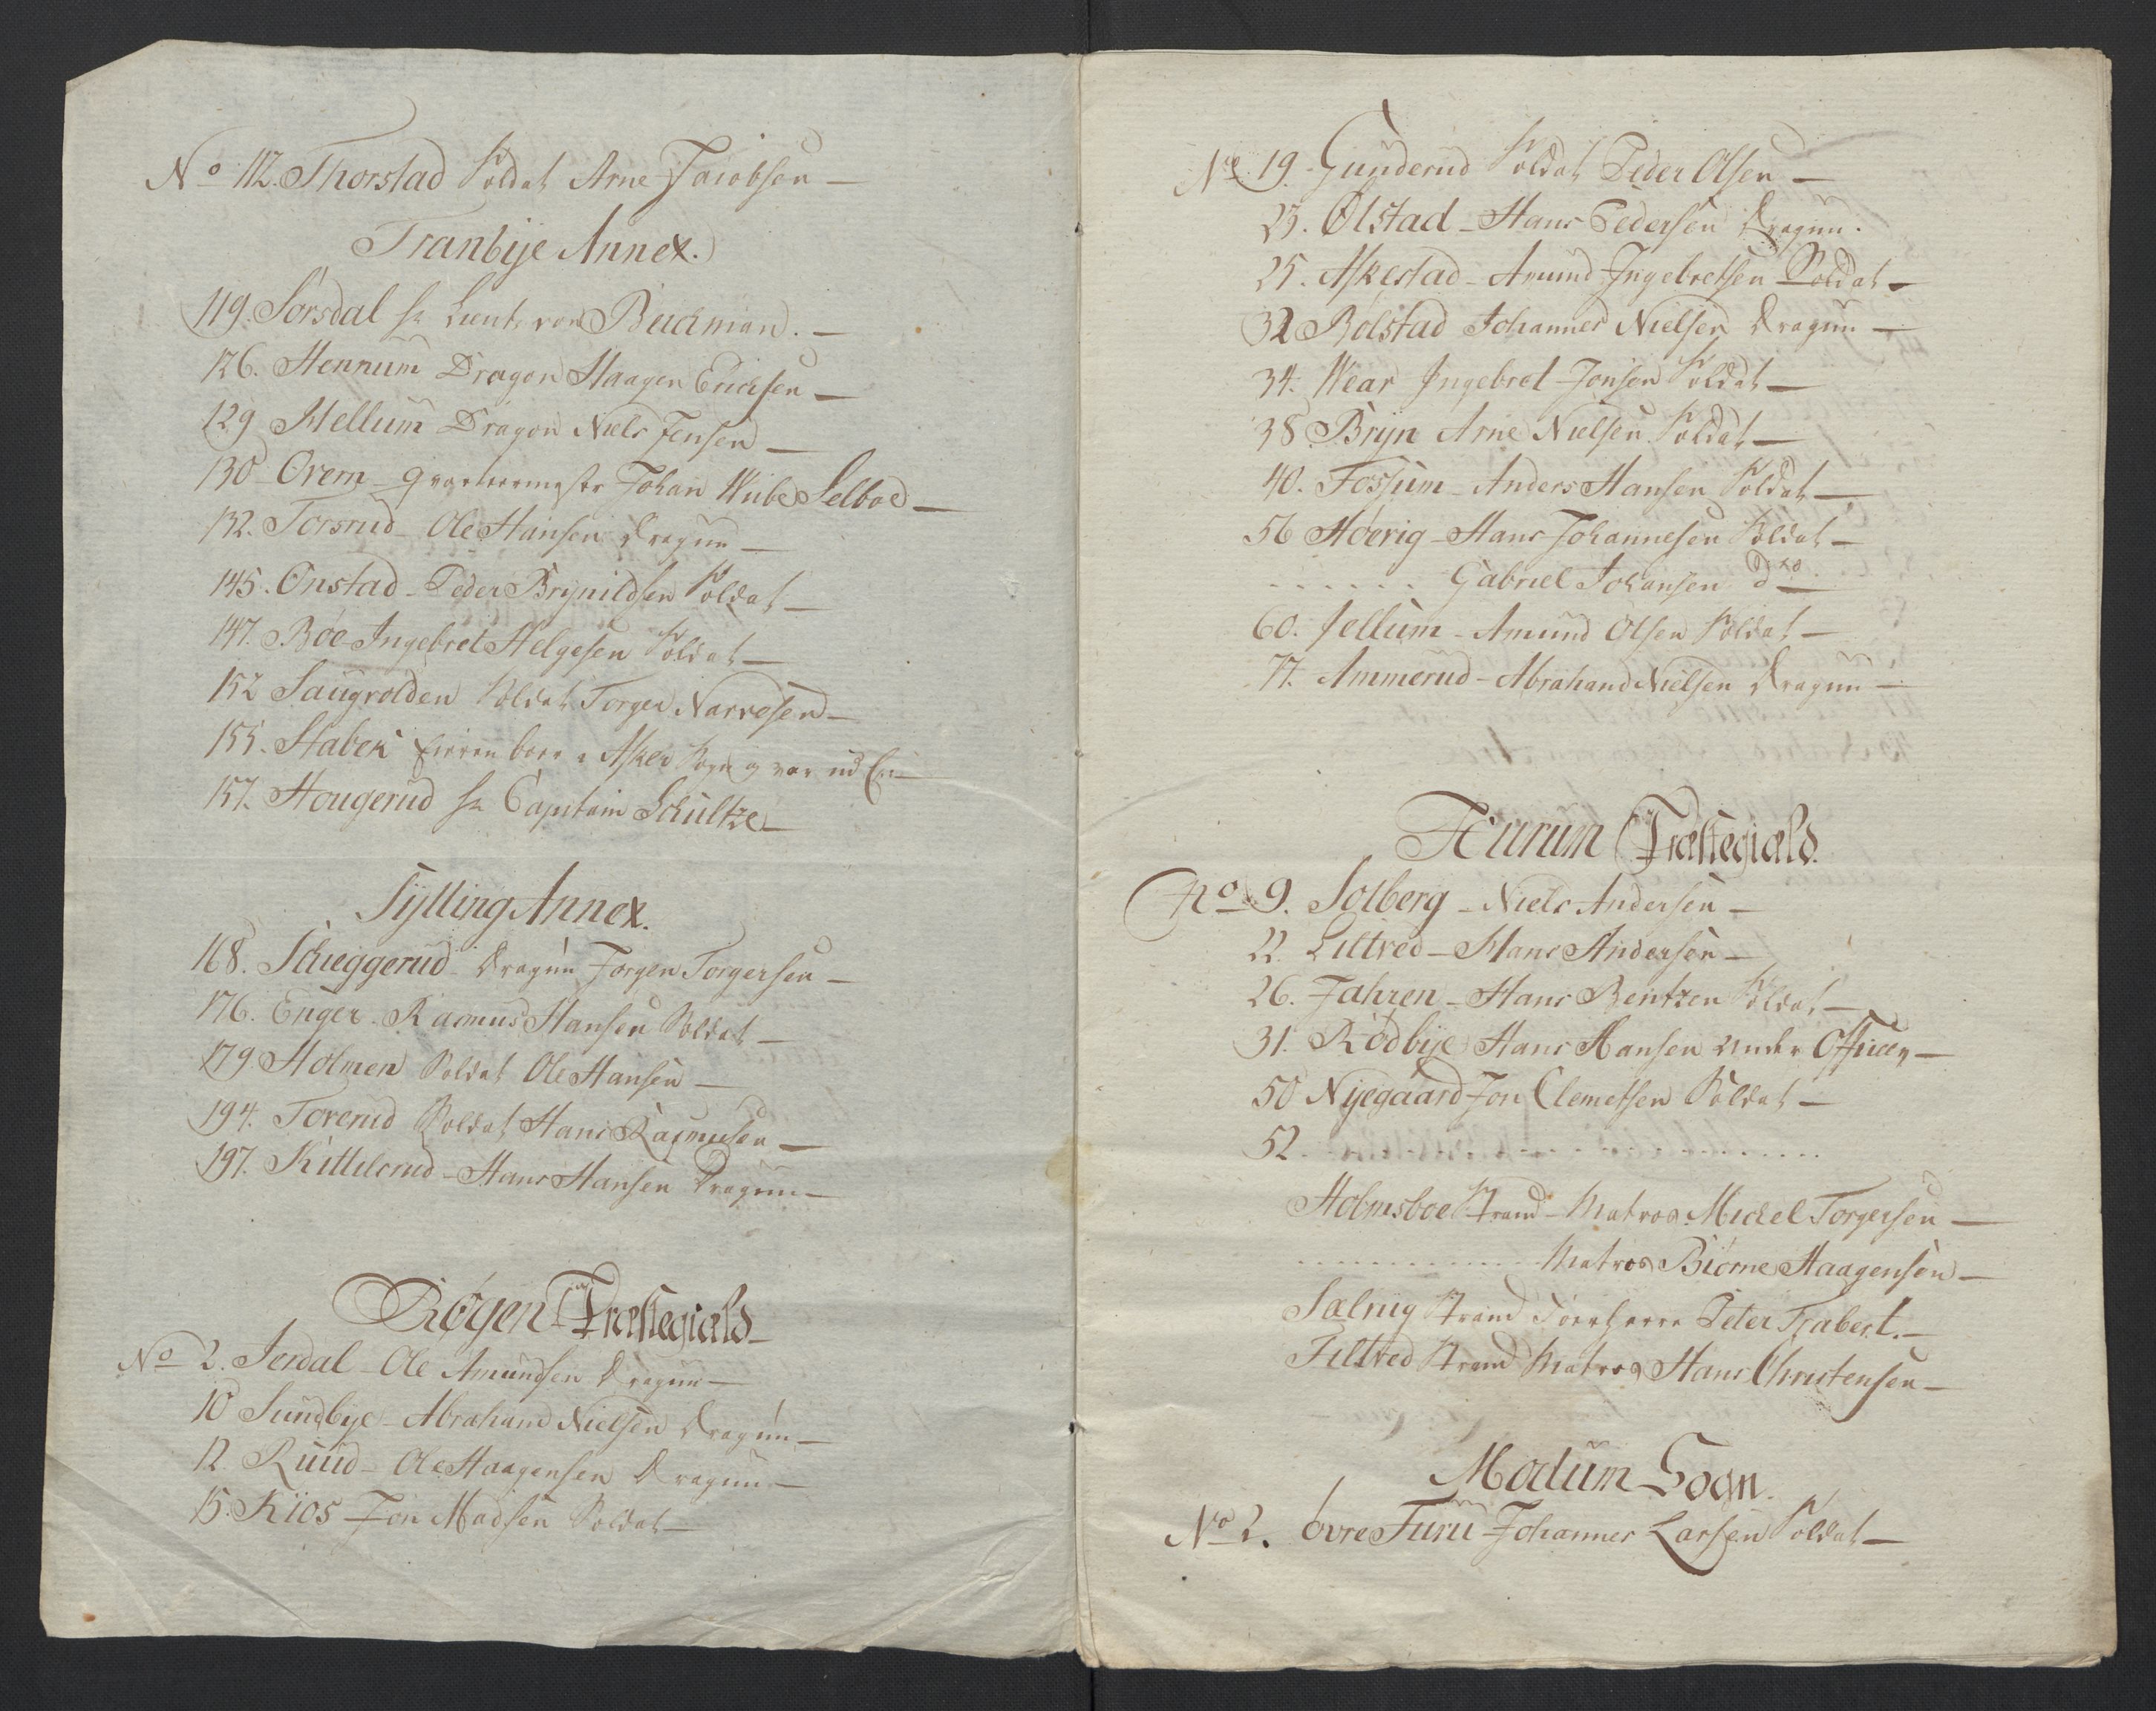 No 112. Thorstad Soldat Arne Jacobsen —
Tranbÿe Annex.
119. Sørsdal Hr Lieut. von Buchman. —
126. Hennum Dragon Haagen Erichsen —
129 Mellum Dragon Niels Jensen —
130 Overn - qvarteermestr Johan Wibe Selboe —
132. Torsrud - Ole Hansen Dragun —
145. Onstad - Peder Brÿnildsen Soldat —
147. Bøe - Ingebret Helgesen Soldat —
152 Haugvolden Soldat Torger Narvesen —
155. Stabek boer i Asker Sogn
157. Hougerud Hr Capitain Schultze —
Sÿlling Annex.
168. Scheggerud - Dragun Jørgen Torgersen —
176. Enger - Rasmus Hansen Soldat —
179 Holmen Soldat Ole Hansen —
194. Toverud Soldat Hans Rasmusen —
197. Kittilsrud - Hans Hansen Dragun —
Røgen Præstegiæld —
No 2. Jerdal - Ole Amundsen Dragun —
10 Sundbye - Abraham Nielsen Dragun —
12 Ruud - Ole Haagensen Dragun —
15. Kios - Jon Madsen Soldat —
No 19. Gunderud Soldat Peder Olsen —
23. Ølstad - Hans Pedersen Dragun.
25. Askestad - Amund Ingebretsen Soldat —
32 Bølstad Johannes Nielsen Dragun —
34. Wear Ingebret Jonsen Soldat —
38 Brÿn Arne Nielsen Soldat —
40. Fossum - Anders Hansen Soldat —
56 Høvrig - Hans Johannesen Soldat —
. . . . . . Gabriel Johansen dto —
60. Jellum - Amund Olsen Soldat —
77. Ammerud - Abraham Nielsen Dragun —
Hurum Præstegiæld.
No 9. Solberg - Niels Andersen —
22. Liltved - Hans Andersen —
26. Jahren - Hans Bentzen Soldat —
31. Rødbÿe Hans Hansen Under Officer —
50 Nÿegaard Jon Clemetsen Soldat —
52. . . . . . . . . . . . . . . . . .
Holmsboe Strand - Matros Michel Torgersen —
. . . . . . . . . . . . Matros Biørne Haagensen —
Sælrüg Strand Peter Trabert. —
Filtved Strand Matros Hans Christensen —
Modum Sogn.
No 2. Øvre Furu Johannes Larsen Soldat —